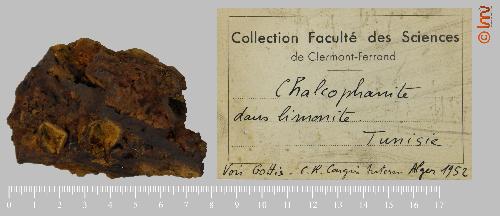 Collection Faculté des Sciences
de Clermont-Ferrand
Chalcophanite
dans limonite
Tunisie
Voir Gottis - C.R. Congrès Intern Alger 1952
0 1 2 3 4 5 6 7 8 9 10 11 12 13 14 15 16 17